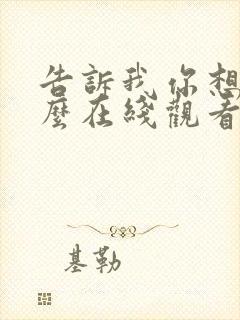 告訴我 你想
麼在綫觀看
基勒